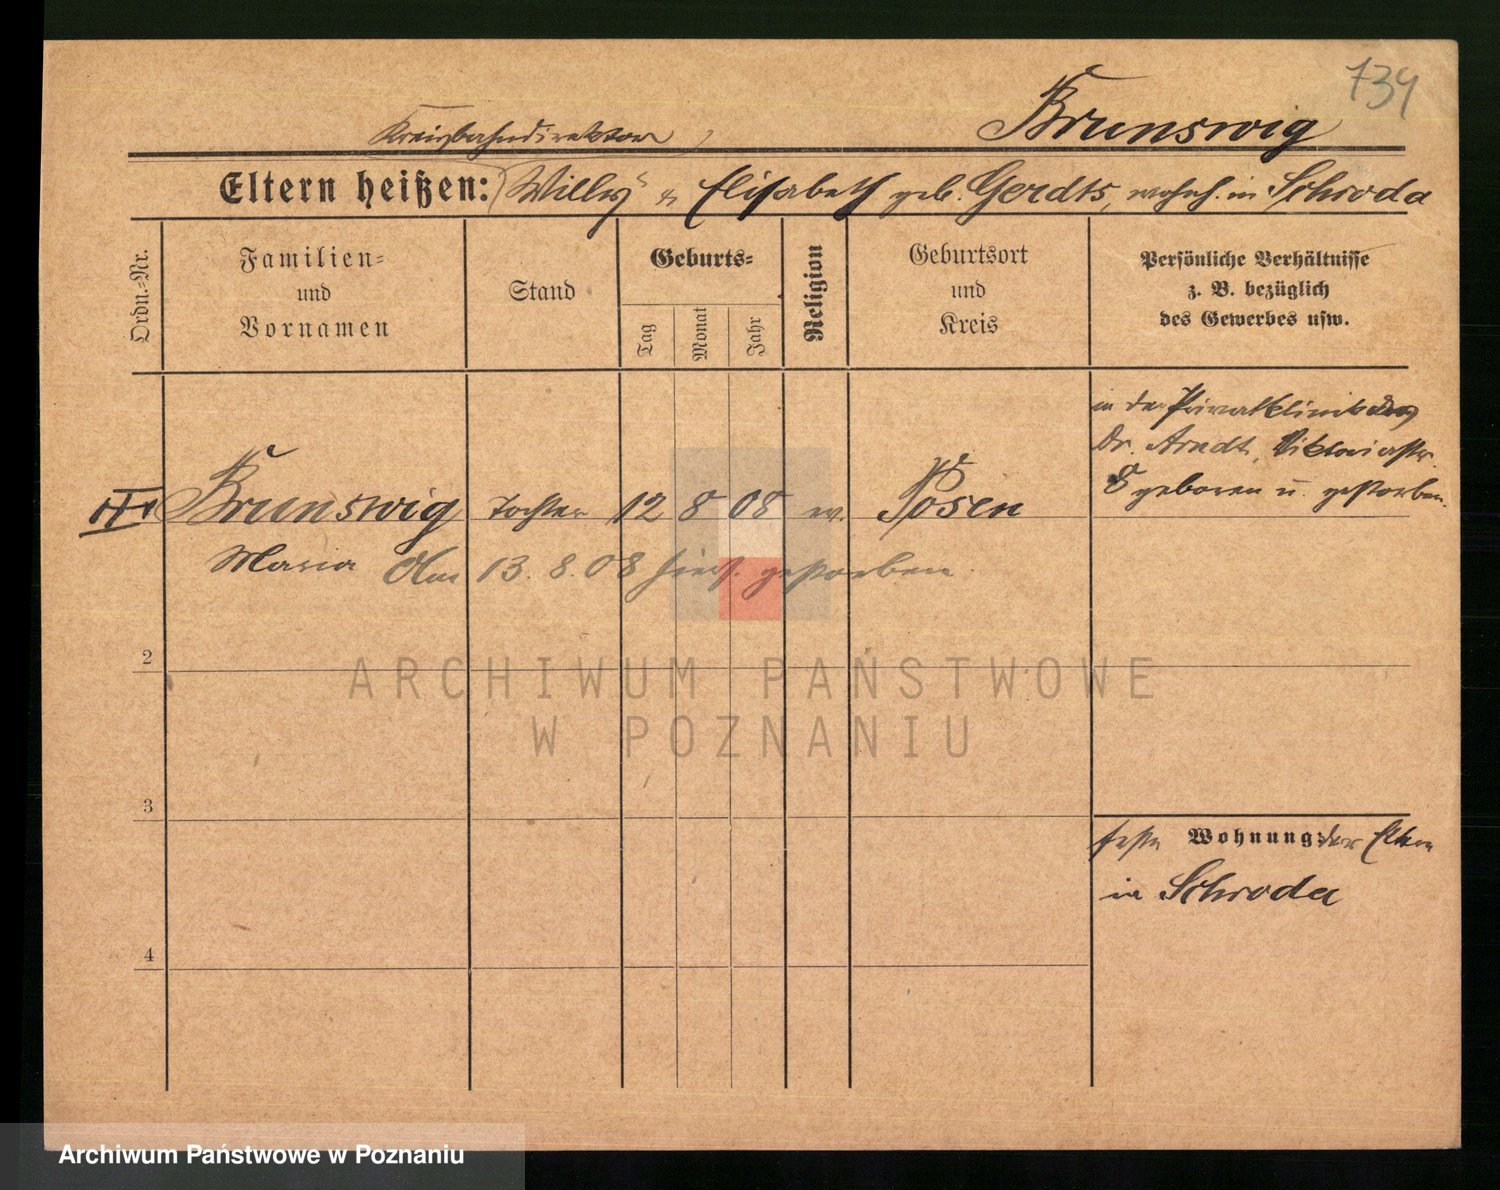 739
Kreisbahndirektor
Brunswig
Eltern heißen: Willy u Elisabeth geb. Gerdts, wohnh. in Schroda
Ordn.=Nr.
Familien=
und
Vornamen
Stand
Geburts=
Tag
Monat
Jahr
Religion
Geburtsort
und
Kreis
Persönliche Verhältnisse
z. B. bezüglich
des Gewerbes usw.
in der Privatklinik des
Dr. Arndt, Viktoriastr.
8 geboren u. gestorben.
Brunswig Tochter 12 8 08 ev. Posen
Maria Am 13. 8. 08 hier gestorben.
2
ARCHIWUM PAŃSTWOWE
W POZNANIU
3
feste Wohnung: der Eltern
in Schroda
4
Archiwum Państwowe w Poznaniu